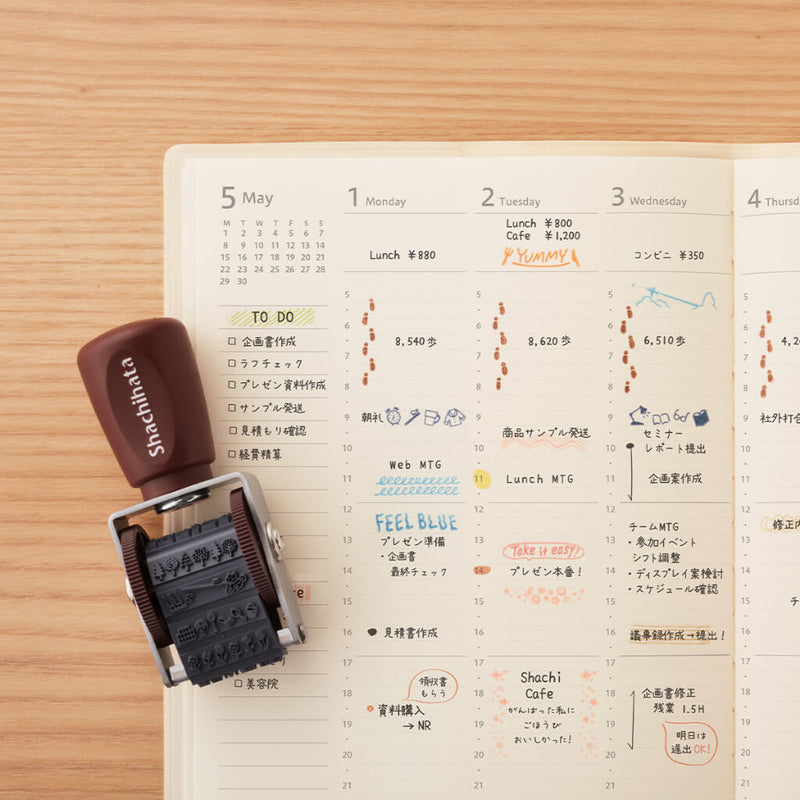 Shachihata
5 May
M T W T F S S
1 2 3 4 5 6 7
8 9 10 11 12 13 14
15 16 17 18 19 20 21
22 23 24 25 26 27 28
29 30
TO DO
企画書作成
ラフチェック
プレゼン資料作成
サンプル発送
見積もり確認
経費精算
美容院
1 Monday
Lunch ¥880
5
6
8,540歩
7
8
9 朝礼
10
Web MTG
11
12
FEEL BLUE
13 プレゼン準備
・企画書
14 最終チェック
15
16 見積書作成
17
領収書
もらう
18
資料購入
19 → NR
20
21
2 Tuesday
Lunch ¥800
Cafe ¥1,200
YUMMY
5
6
8,620歩
7
8
9
商品サンプル発送
10
11 Lunch MTG
12
13 Take it easy!
14 プレゼン本番!
15
16
17
Shachi
18 Cafe
がんばった私に
19 ごほうび
おいしかった!
20
21
3 Wednesday
コンビニ ¥350
5
6
6,510歩
7
8
9
セミナー
10 レポート提出
11 企画案作成
12
チームMTG
13 ・参加イベント
シフト調整
14 ・ディスプレイ案検討
・スケジュール確認
15
16 議事録作成→提出!
17
18 企画書修正
残業 1.5H
19
明日は
遅出OK!
20
21
4 Thursd
5
6
4,2
7
8
9 社外打合
10
11
12
修正内
13
14
チ
15
16
17
18
19
20
21